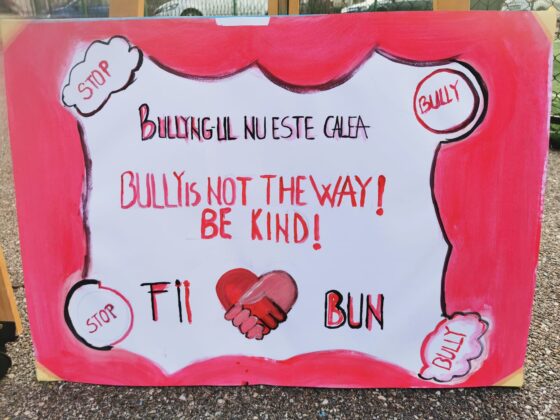 STOP
BULLY
BULLYNG-UL NU ESTE CALEA
BULLY IS NOT THE WAY!
BE KIND!
Fii BUN
STOP
BULLY